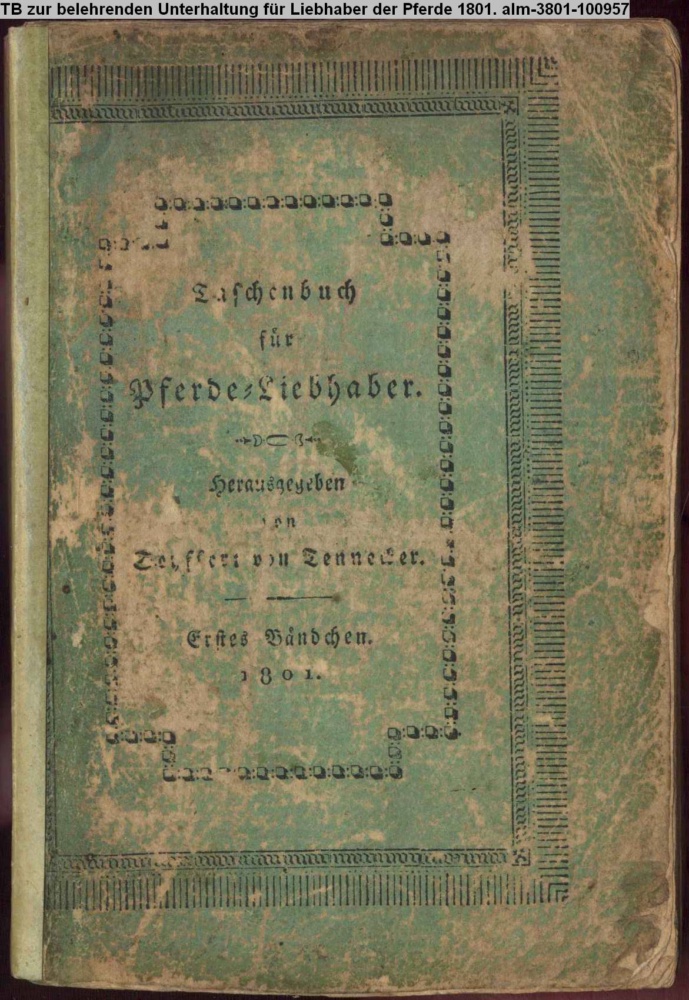 TB zur belehrenden Unterhaltung für Liebhaber der Pferde 1801. alm-3801-100957
Taschenbuch
für
Pferde-Liebhaber.
Herausgegeben
von
von Tennecker.
Erstes Bändchen.
1801.